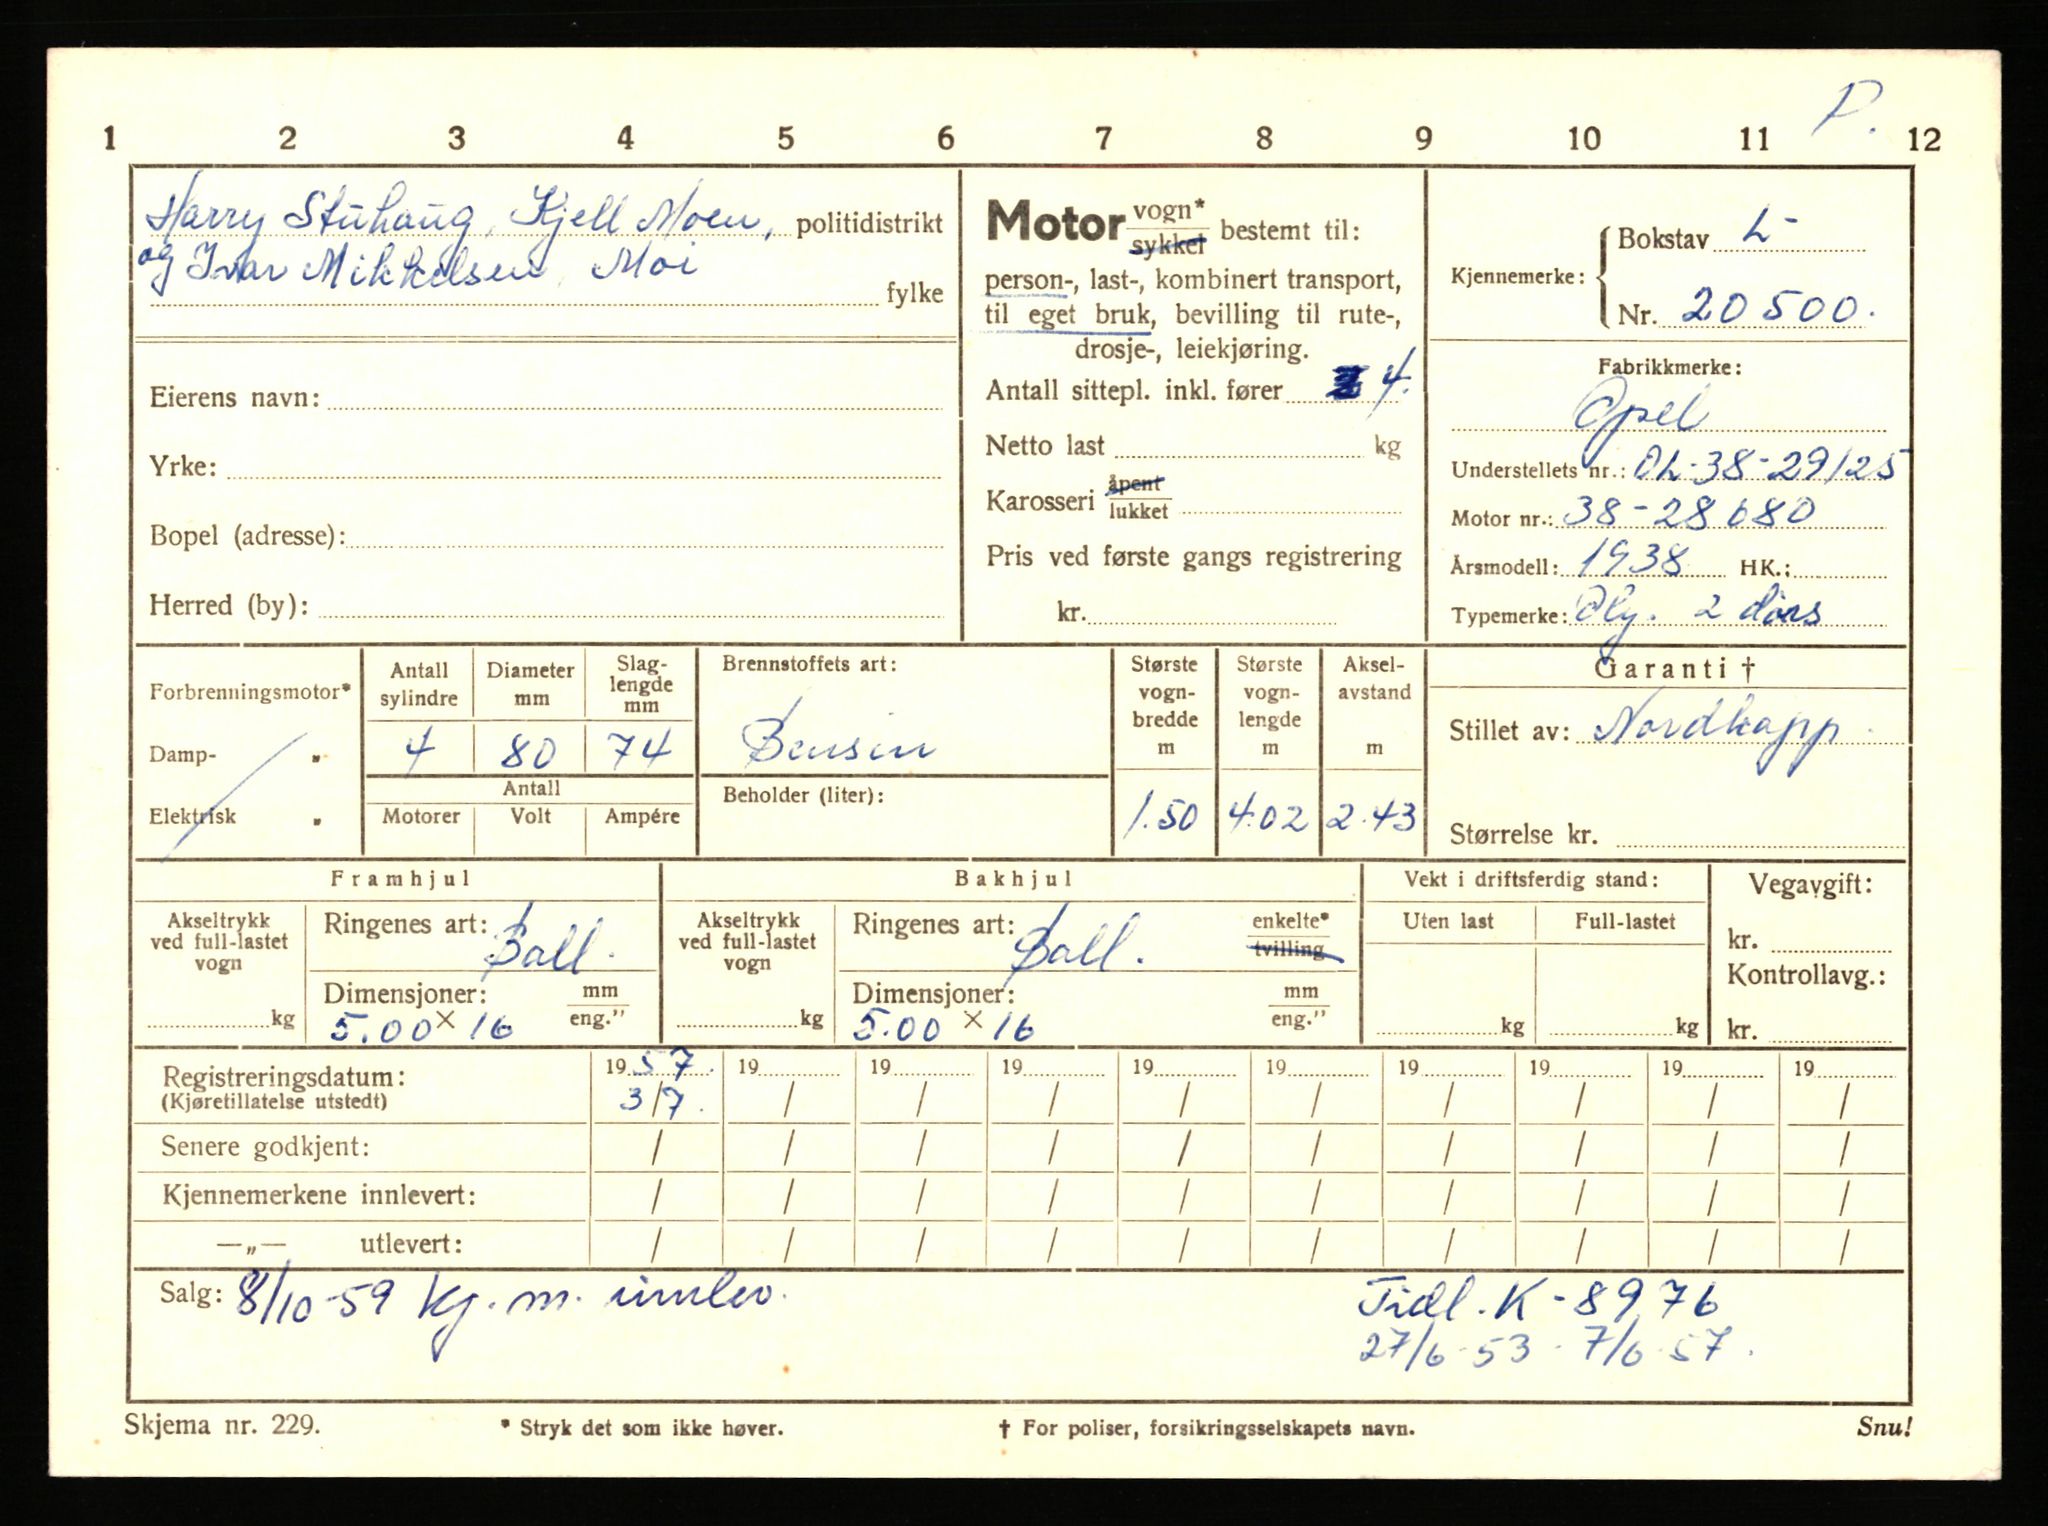 P.
1 2 3 4 5 6 7 8 9 10 11 12
Harry Stuhaug, Kjell Moen, politidistrikt
og Ivar Mikkelsen, Moi
fylke
Eierens navn:
Yrke:
Bopel (adresse):
Herred (by):
Motor vogn* sykkel bestemt til:
person-, last-, kombinert transport,
til eget bruk, bevilling til rute-,
drosje-, leiekjøring.
Antall sittepl. inkl. fører 4.
Netto last kg
Karosseri åpent lukket
Pris ved første gangs registrering
kr.
Kjennemerke: Bokstav L-
Nr. 20500.
Fabrikkmerke:
Opel
Understellets nr.: OL-38-29125
Motor nr.: 38-28680
Årsmodell: 1938 HK.:
Typemerke: Oly. 2 dørs
Forbrenningsmotor*
Damp- „
Elektrisk „
Antall sylindre
Diameter mm
Slag-lengde mm
4 80 74
Antall
Motorer Volt Ampére
Brennstoffets art:
Bensin
Beholder (liter):
Største vogn-bredde m
Største vogn-lengde m
Aksel-avstand m
1.50 4.02 2.43
Garanti †
Stillet av: Nordkapp
Størrelse kr.
Framhjul
Akseltrykk ved full-lastet vogn
kg
Ringenes art: Ball.
Dimensjoner: mm eng."
5.00 x 16
Bakhjul
Akseltrykk ved full-lastet vogn
kg
Ringenes art: Ball. enkelte* tvilling
Dimensjoner: mm eng."
5.00 x 16
Vekt i driftsferdig stand:
Uten last Full-lastet
kg kg
Vegavgift:
kr.
Kontrollavg.:
kr.
Registreringsdatum: 1957. 19 19 19 19 19 19 19 19 19
(Kjøretillatelse utstedt) 3/7. / / / / / / / / /
Senere godkjent: / / / / / / / / / /
Kjennemerkene innlevert: / / / / / / / / / /
—„— utlevert: / / / / / / / / / /
Salg: 8/10-59 kj. m. innlev.
Tidl. K-8976
27/6-53 - 7/6-57.
Skjema nr. 229.
* Stryk det som ikke høver.
† For poliser, forsikringsselskapets navn.
Snu!